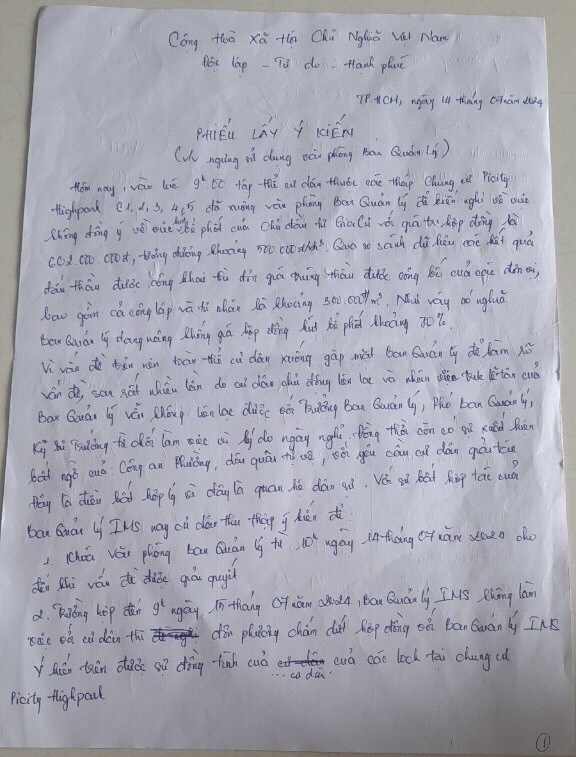 Cộng Hoà Xã Hội Chủ Nghĩa Việt Nam
Độc lập - Tự do - Hạnh phúc
TP.HCH, ngày 14 tháng 07 năm 2024
PHIẾU LẤY Ý KIẾN
(V/v ngưng sử dụng văn phòng Ban Quản Lý)
Hôm nay, vào lúc 9h00 tập thể cư dân thuộc các tháp chung cư Picity
Highpark C1, 2, 3, 4, 5 đã xuống văn phòng Ban Quản Lý để kiến nghị về việc
không đồng ý về việc hút bể phốt của Chủ đầu tư Gia Cư với giá trị hợp đồng là
602.000.000đ, tương đương khoảng 500.000đ/m³. Qua so sánh dữ liệu các kết quả
đấu thầu được công khai thì đơn giá trúng thầu được công bố của các đơn vị,
bao gồm cả công lập và tư nhân là khoảng 300.000đ/m³. Như vậy có nghĩa
Ban Quản Lý đang nâng khống giá hợp đồng hút bể phốt khoảng 70%.
Vì vấn đề trên nên toàn thể cư dân xuống gặp mặt Ban Quản Lý để làm rõ
vấn đề, sau rất nhiều lần do cư dân chủ động liên lạc và nhân viên trực lễ tân của
Ban Quản Lý vẫn không liên lạc được với Trưởng Ban Quản Lý, Phó Ban Quản Lý,
Kỹ sư Trưởng từ chối làm việc vì lý do ngày nghỉ. Đồng thời còn có sự xuất hiện
bất ngờ của Công an Phường, dân quân tự vệ, với yêu cầu cư dân giải tán
Đây là điều bất hợp lý vì đây là quan hệ dân sự. Với sự bất hợp tác của
Ban Quản Lý IMS nay cư dân thu thập ý kiến để:
1. Khoá Văn phòng Ban Quản Lý từ 10h ngày 14 tháng 07 năm 2024 cho
đến khi vấn đề được giải quyết
2. Trường hợp đến 9h ngày 15 tháng 07 năm 2024, Ban Quản Lý IMS không làm
việc với cư dân thì đơn phương chấm dứt hợp đồng với Ban Quản Lý IMS
Ý kiến trên được sự đồng tình của cư dân của các lock tại chung cư
... cư dân ...
Picity Highpark
1